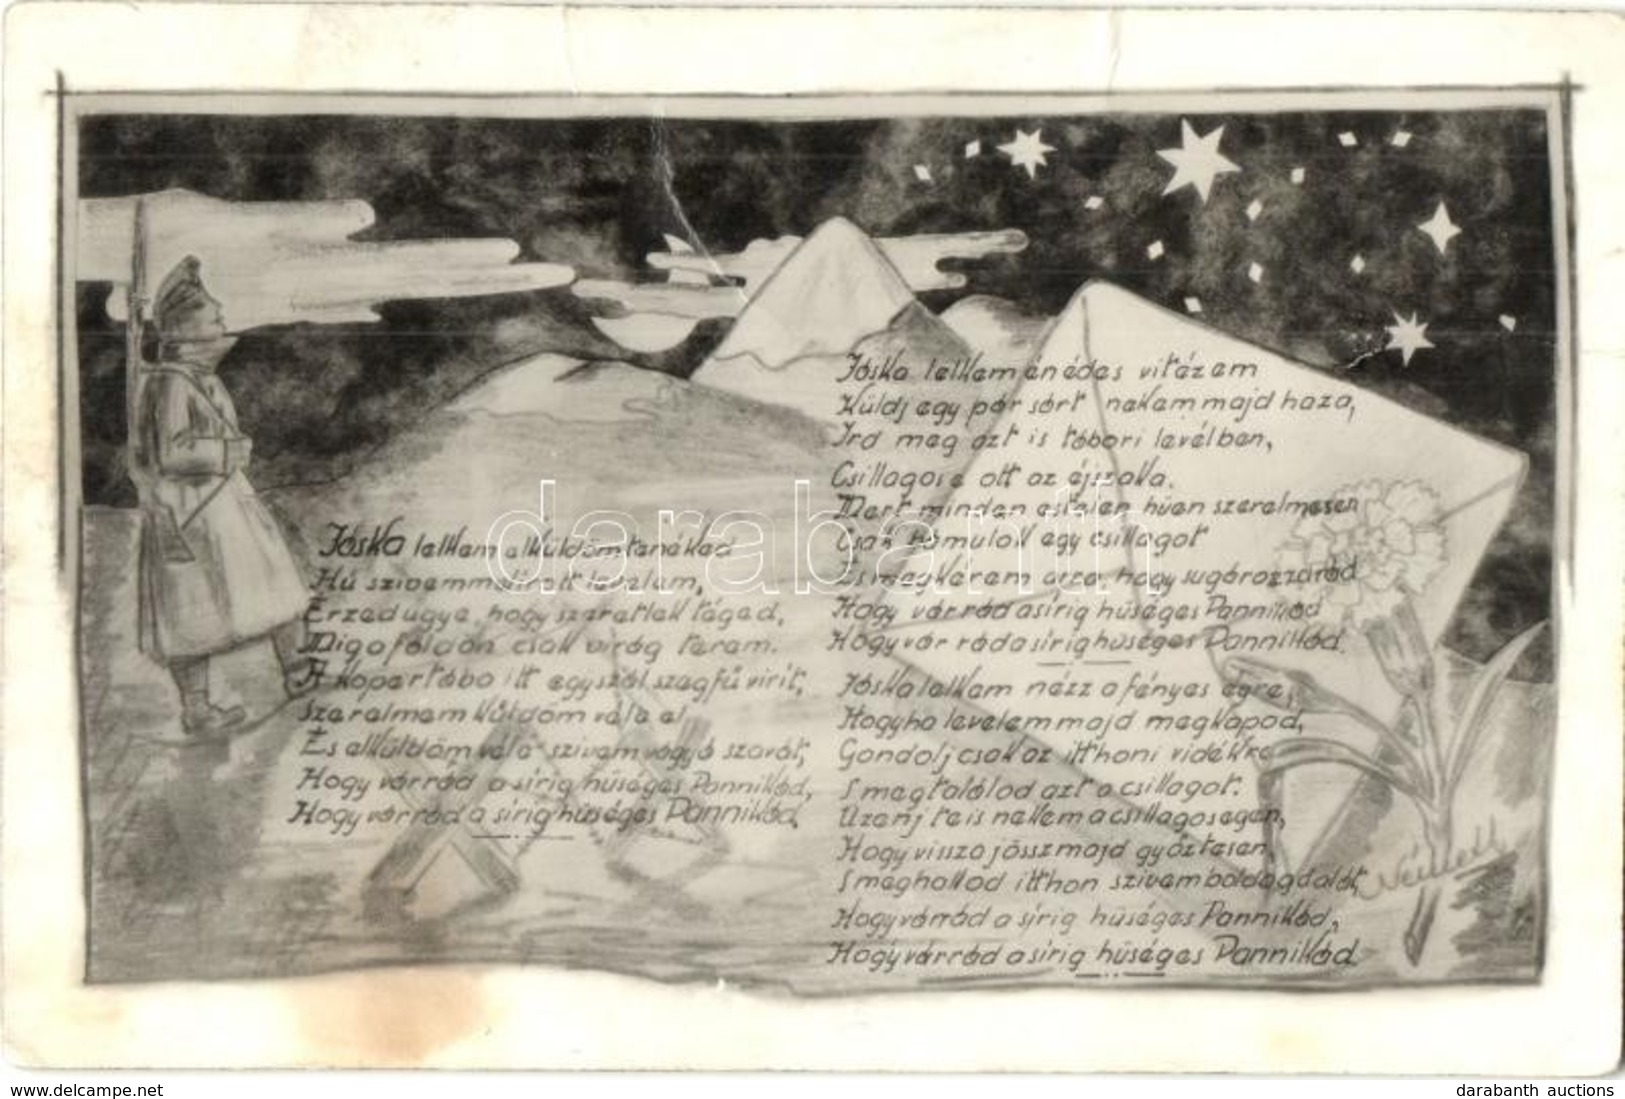 Jóska lelkem elküldöm tenéked
Hű szivemmel irott levelem,
Érzed ugye, hogy szeretlek téged,
Mig a földön csak virág terem.
A kopertába itt egy szál szegfű virít,
Szerelmem küldöm véle el
És elküldöm véle szivem vágyó szavát,
Hogy vár rád a sírig hűséges Pannikád,
Hogy vár rád a sírig hűséges Pannikád.
Jóska lelkem én édes vitézem
Küldj egy pár sórt nekem majd haza,
Ird meg azt is tábori levélben,
Csillagos e ott az éjszaka.
Mert minden estelen hűen szerelmesen
Csak bámulok egy csillagot
És megkérem arra, hogy sugározza rád
Hogy vár rád a sírig hűséges Pannikád
Hogy vár rád a sírig hűséges Pannikád.
Jóska lelkem nézz a fényes égre,
Hogyha levelem majd megkapod,
Gondolj csak az itthoni vidékre
S megtalálod azt a csillagot.
Üzenj te is nekem a csillagos egen,
Hogy vissza jössz majd győztesen
S meghallod itthon szivem boldog dalát,
Hogy vár rád a sírig hűséges Pannikád,
Hogy vár rád a sírig hűséges Pannikád.
Németh
darabanth
www.delcampe.net
darabanth auctions